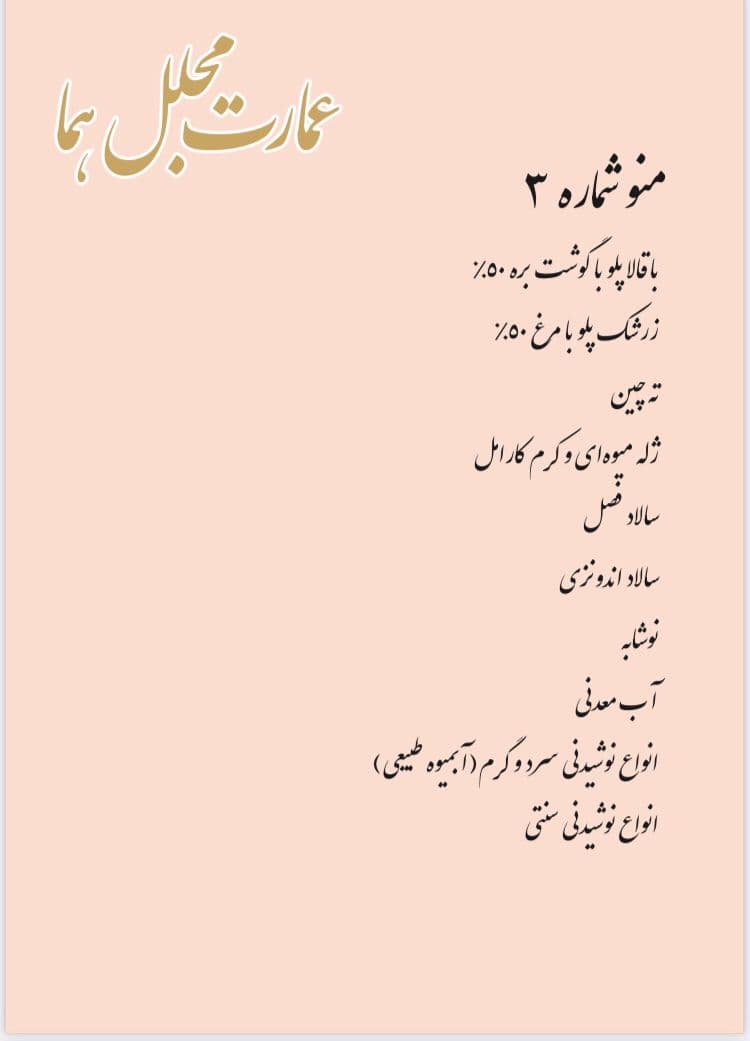 عمارت مجلل هما
منو شماره ۳
باقالا پلو با گوشت بره ۵۰٪
زرشک پلو با مرغ ۵۰٪
ته چین
ژله میوه‌ای و کرم کارامل
سالاد فصل
سالاد اندونزی
نوشابه
آب معدنی
انواع نوشیدنی سرد و گرم (آبمیوه طبیعی)
انواع نوشیدنی سنتی